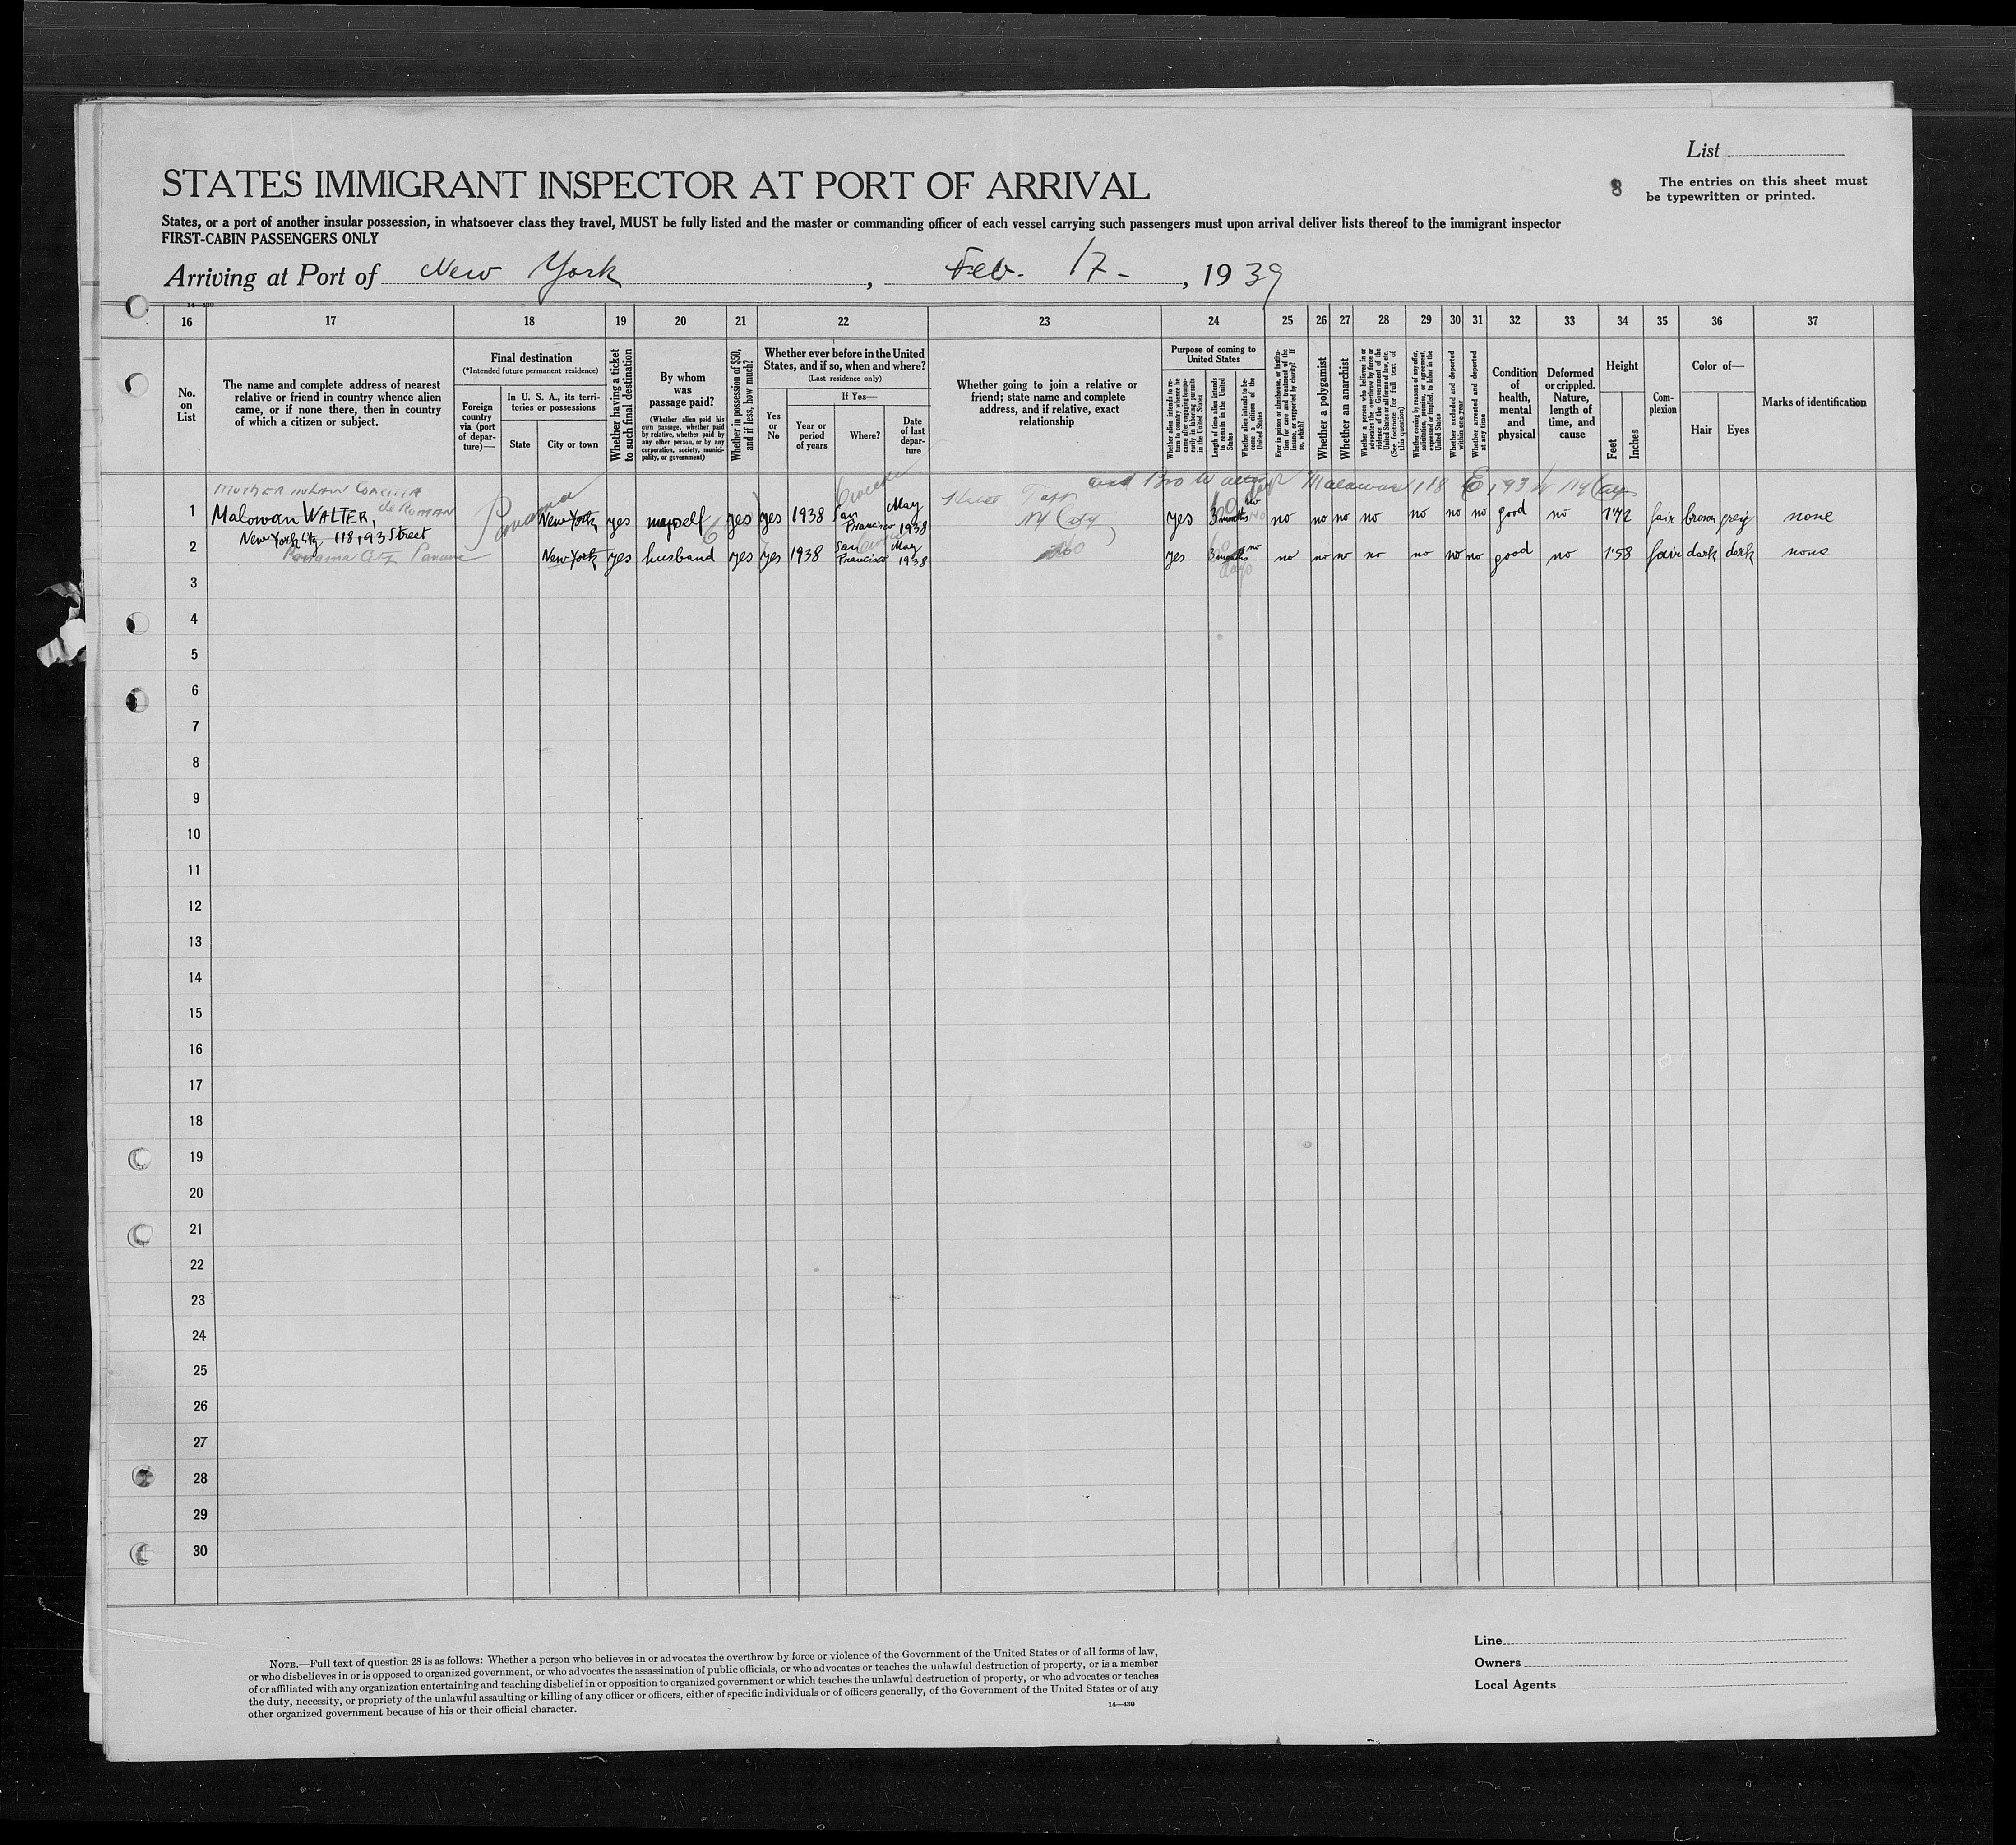 List
STATES IMMIGRANT INSPECTOR AT PORT OF ARRIVAL
8
The entries on this sheet must
be typewritten or printed.
States, or a port of another insular possession, in whatsoever class they travel, MUST be fully listed and the master or commanding officer of each vessel carrying such passengers must upon arrival deliver lists thereof to the immigrant inspector
FIRST-CABIN PASSENGERS ONLY
Arriving at Port of New York, Feb. 17-, 1939
14—430
16 17 18 19 20 21 22 23 24 25 26 27 28 29 30 31 32 33 34 35 36 37
No.
on
List
The name and complete address of nearest
relative or friend in country whence alien
came, or if none there, then in country
of which a citizen or subject.
Final destination
(*Intended future permanent residence)
Foreign
country
via (port
of depar-
ture)—
In U. S. A., its terri-
tories or possessions
State
City or town
Whether having a ticket
to such final destination
By whom
was
passage paid?
(Whether alien paid his
own passage, whether paid
by relative, whether paid by
any other person, or by any
corporation, society, munici-
pality, or government)
Whether in possession of $50,
and if less, how much?
Whether ever before in the United
States, and if so, when and where?
(Last residence only)
Yes
or
No
If Yes—
Year or
period
of years
Where?
Date
of last
depar-
ture
Whether going to join a relative or
friend; state name and complete
address, and if relative, exact
relationship
Purpose of coming to
United States
Whether alien intends to re-
turn to country whence he
came after engaging tempo-
rarily in laboring pursuits
in the United States
Length of time alien intends
to remain in the United
States
Whether alien intends to be-
come a citizen of the
United States
Ever in prison or almshouse, or institu-
tion for care and treatment of the
insane, or supported by charity? If
so, which?
Whether a polygamist
Whether an anarchist
Whether a person who believes in or
advocates the overthrow by force or
violence of the Government of the
United States or all forms of law, etc.
(See footnote for full text of
this question)
Whether coming by reasons of any offer,
solicitation, promise, or agreement,
expressed or implied, to labor in the
United States
Whether excluded and deported
within one year
Whether arrested and deported
at any time
Condition
of
health,
mental
and
physical
Deformed
or crippled.
Nature,
length of
time, and
cause
Height
Feet
Inches
Com-
plexion
Color of—
Hair
Eyes
Marks of identification
MOTHER IN LAW
de ROMAN
Panama
and Bro Walter Malowan 118 E 93
1 Malowan WALTER, New York yes myself yes yes 1938 San Francisco May 1938 NY City yes 3 months no no no no no no no no good no 1'72 fair brown grey none
New York City 118, 93 Street
2 New York yes husband yes yes 1938 San Francisco May 1938 yes 3 months no no no no no no no no good no 1'58 fair dark dark none
Panama City Panama
days
3
4
5
6
7
8
9
10
11
12
13
14
15
16
17
18
19
20
21
22
23
24
25
26
27
28
29
30
NOTE.—Full text of question 28 is as follows: Whether a person who believes in or advocates the overthrow by force or violence of the Government of the United States or of all forms of law,
or who disbelieves in or is opposed to organized government, or who advocates the assassination of public officials, or who advocates or teaches the unlawful destruction of property, or is a member
of or affiliated with any organization entertaining and teaching disbelief in or opposition to organized government or which teaches the unlawful destruction of property, or who advocates or teaches
the duty, necessity, or propriety of the unlawful assaulting or killing of any officer or officers, either of specific individuals or of officers generally, of the Government of the United States or of any
other organized government because of his or their official character.
14—430
Line
Owners
Local Agents